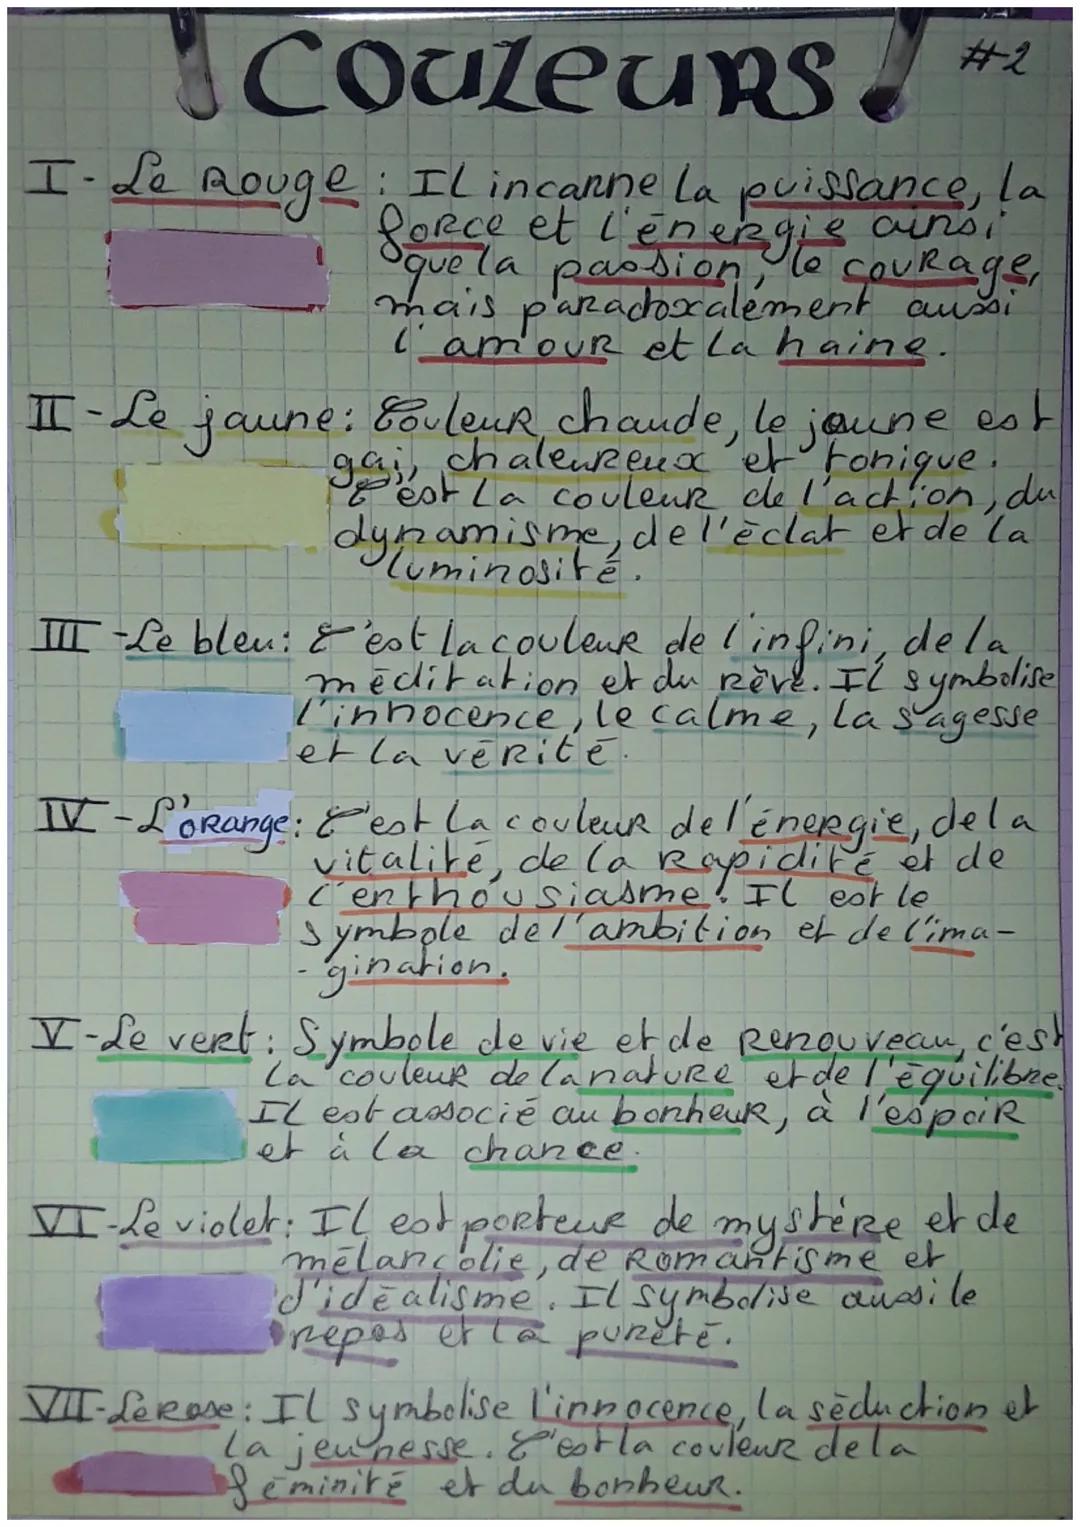 Couleurs #2
I - Le Rouge : Il incarne la puissance, la
force et l'énergie ainsi
que la passion, le courage,
mais paradoxalement aussi
l'amour et la haine.
II - Le jaune : Couleur chaude, le jaune est
gai, chaleureux et tonique.
C'est la couleur de l'action, du
dynamisme, de l'éclat et de la
luminosité.
III - Le bleu : C'est la couleur de l'infini, de la
méditation et du rêve. Il symbolise
l'innocence, le calme, la sagesse
et la vérité.
IV - L'orange : C'est la couleur de l'énergie, de la
vitalité, de la rapidité et de
l'enthousiasme. Il est le
symbole de l'ambition et de l'ima-
-gination.
V - Le vert : Symbole de vie et de renouveau, c'est
la couleur de la nature et de l'équilibre.
Il est associé au bonheur, à l'espoir
et à la chance.
VI - Le violet : Il est porteur de mystère et de
mélancolie, de romantisme et
d'idéalisme. Il symbolise aussi le
repos et la pureté.
VII - Le rose : Il symbolise l'innocence, la séduction et
la jeunesse. C'est la couleur de la
féminité et du bonheur.